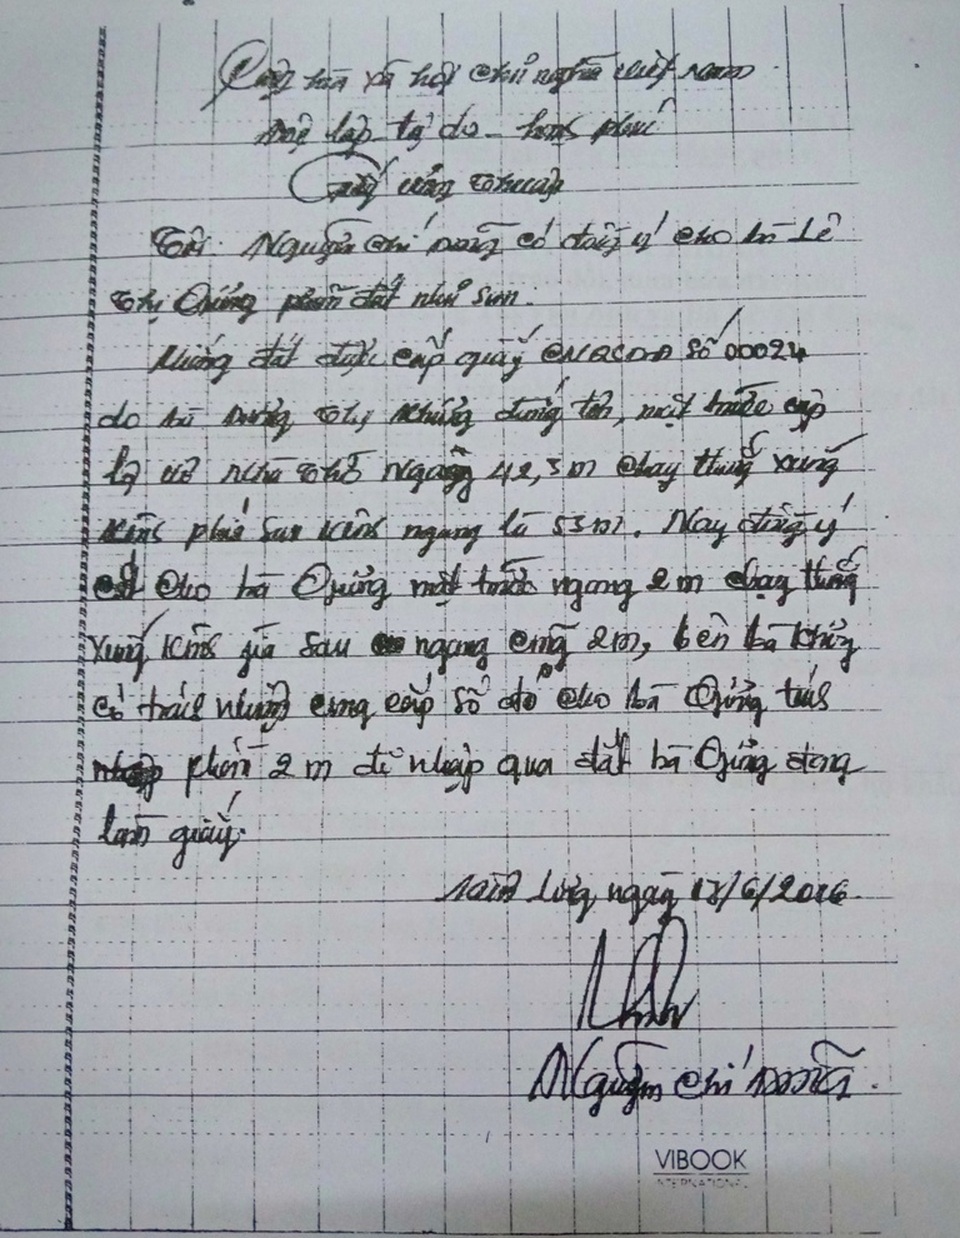 Cộng hòa xã hội chủ nghĩa việt nam
Độc lập tự do - hạnh phúc
Giấy thỏa thuận
Tôi: Nguyễn Chí có đồng ý cho bà Lê
Thị Quảng phần đất như sau.
đất được cấp giấy CNQSDĐ số 00024
do bà Dương Thị Khứng đứng tên, mặt trước cặp
lộ Nhà Thờ Ngang 42,3m chạy thẳng xuống
kinh phía sau kinh ngang là 53m. Nay đồng ý
cắt cho bà Quảng mặt trước ngang 2m chạy thẳng
xuống kinh phía sau ngang cũng 2m, bên bà Khứng
có trách cung cấp sổ đỏ cho bà Quảng tách
phần 2m để nhập qua đất bà Quảng đang
làm giấy.
ngày 18/6/2016
Nguyễn Chí
VIBOOK
INTERNATIONAL